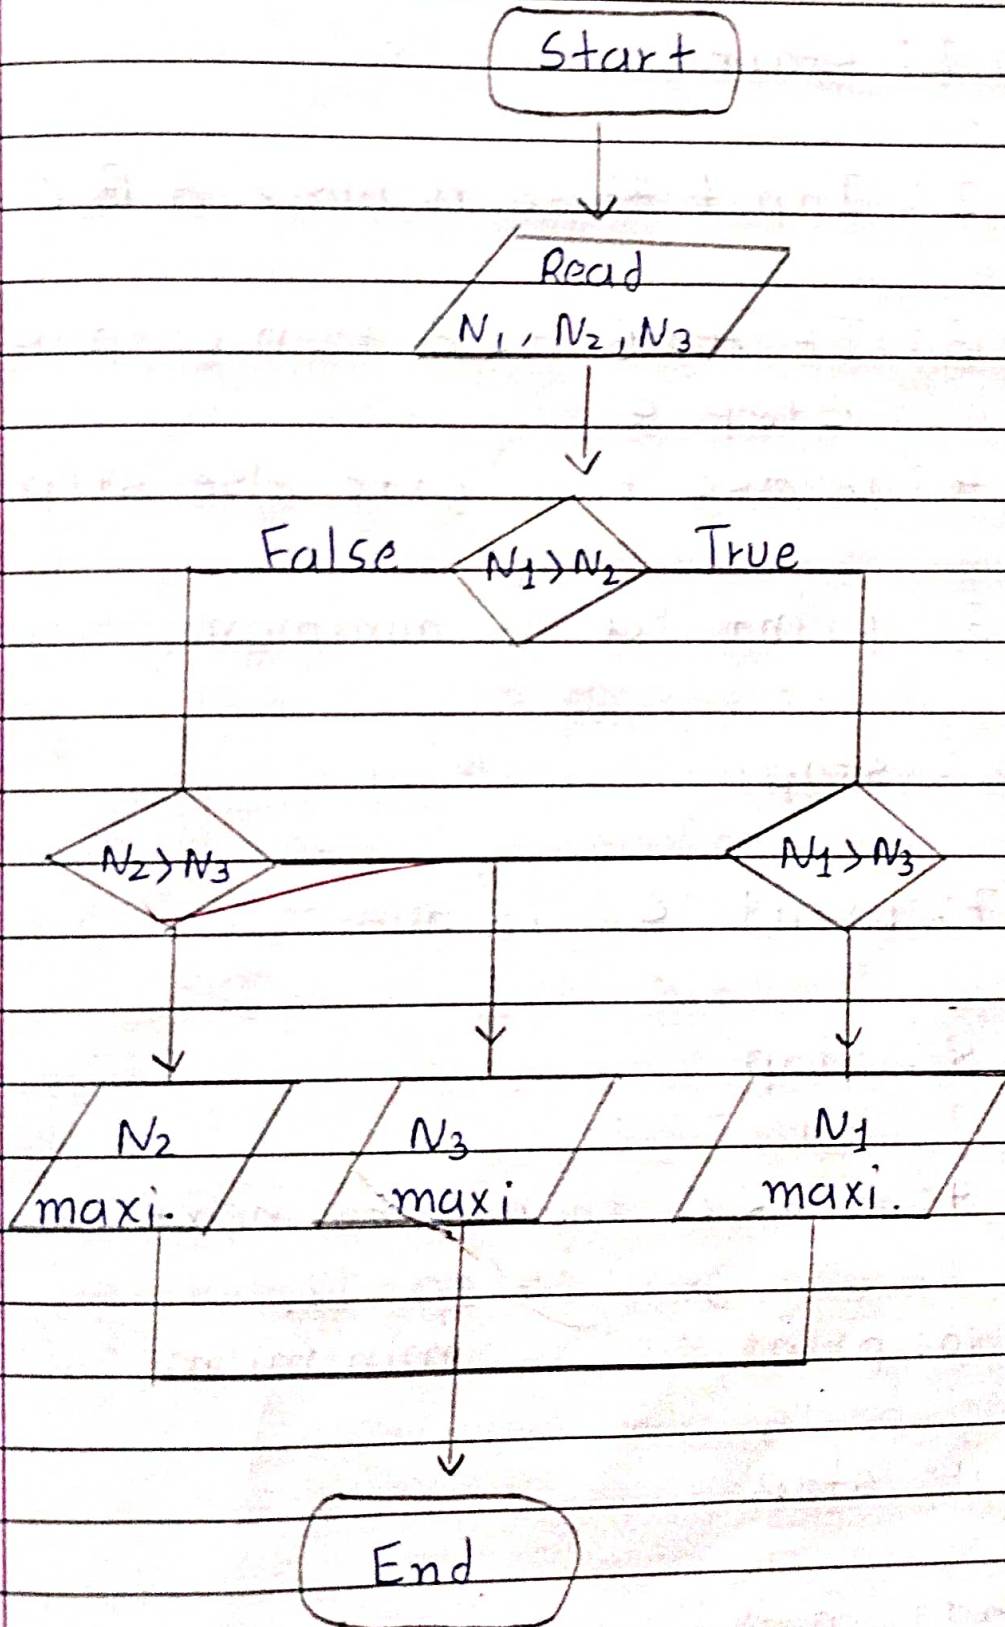 Start
Read
N1, N2, N3
False
N1>N2
True
N2>N3
N1>N3
N2
maxi.
N3
maxi
N1
maxi.
End